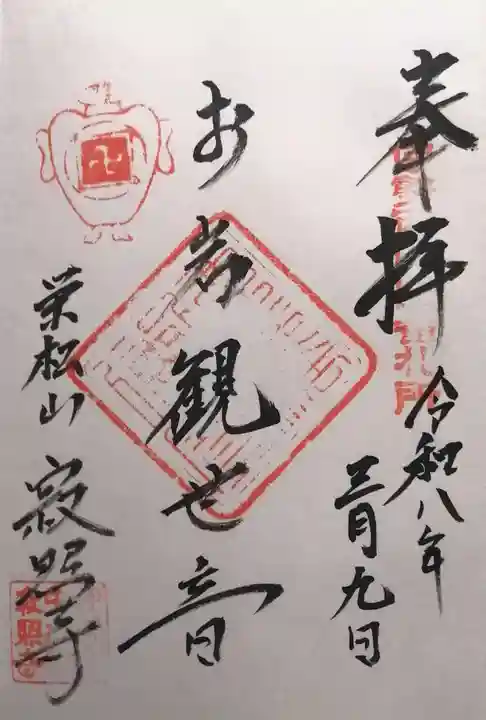 奉拝
令和八年
三月九日
お岩観世音
栄松山
寂照寺